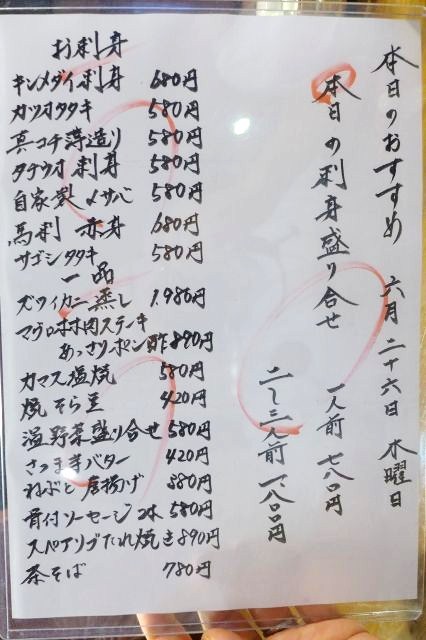 本日のおすすめ 六月二十六日 水曜日
本日の刺身盛り合せ 一人前 七八〇円
二〜三人前 一、八〇〇円
お刺身
キンメダイ刺身 680円
カツオタタキ 580円
真コチ薄造り 580円
タチウオ刺身 580円
自家製〆サバ 580円
馬刺 赤身 680円
サゴシタタキ 580円
一品
ズワイカニ蒸し 1.980円
マグロホホ肉ステーキ
あっさりポン酢 890円
カマス塩焼 580円
焼そら豆 420円
温野菜盛り合せ 580円
さつま芋バター 420円
ねぶと唐揚げ 880円
骨付ソーセージ2本 580円
スペアリブたれ焼き 890円
茶そば 780円